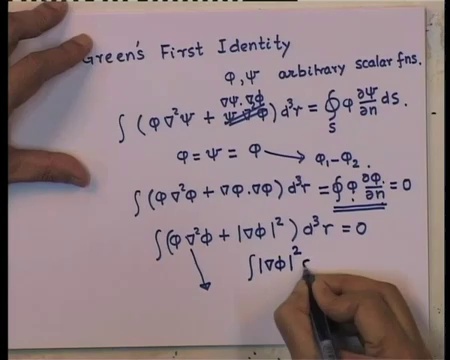 Green's First Identity
φ, ψ arbitrary scalar fns.
∇ψ·∇φ
∫ (φ∇²ψ + ψ∇²φ) d³r = ∮ φ ∂ψ/∂n dS.
S
φ = ψ = φ → φ₁-φ₂.
∫ (φ∇²φ + ∇φ.∇φ) d³r = ∮ φ ∂φ/∂n = 0
∫(φ∇²φ + |∇φ|²) d³r = 0
∫|∇φ|²